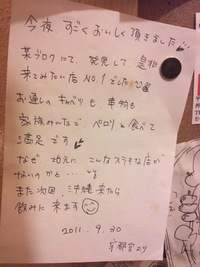 今夜 すごくおいしく頂きました!!
某ブログにて、発見して、是非
来てみたい店 NO.1でした
お通しのキャベツも、串物も
家族みんなで、ペロリと食べて
満足です
なぜ 地元に こんなステキな店が
ないのかと…
また次回 沖縄来たら
飲みに来ます
2011. 9. 30
宇都宮より